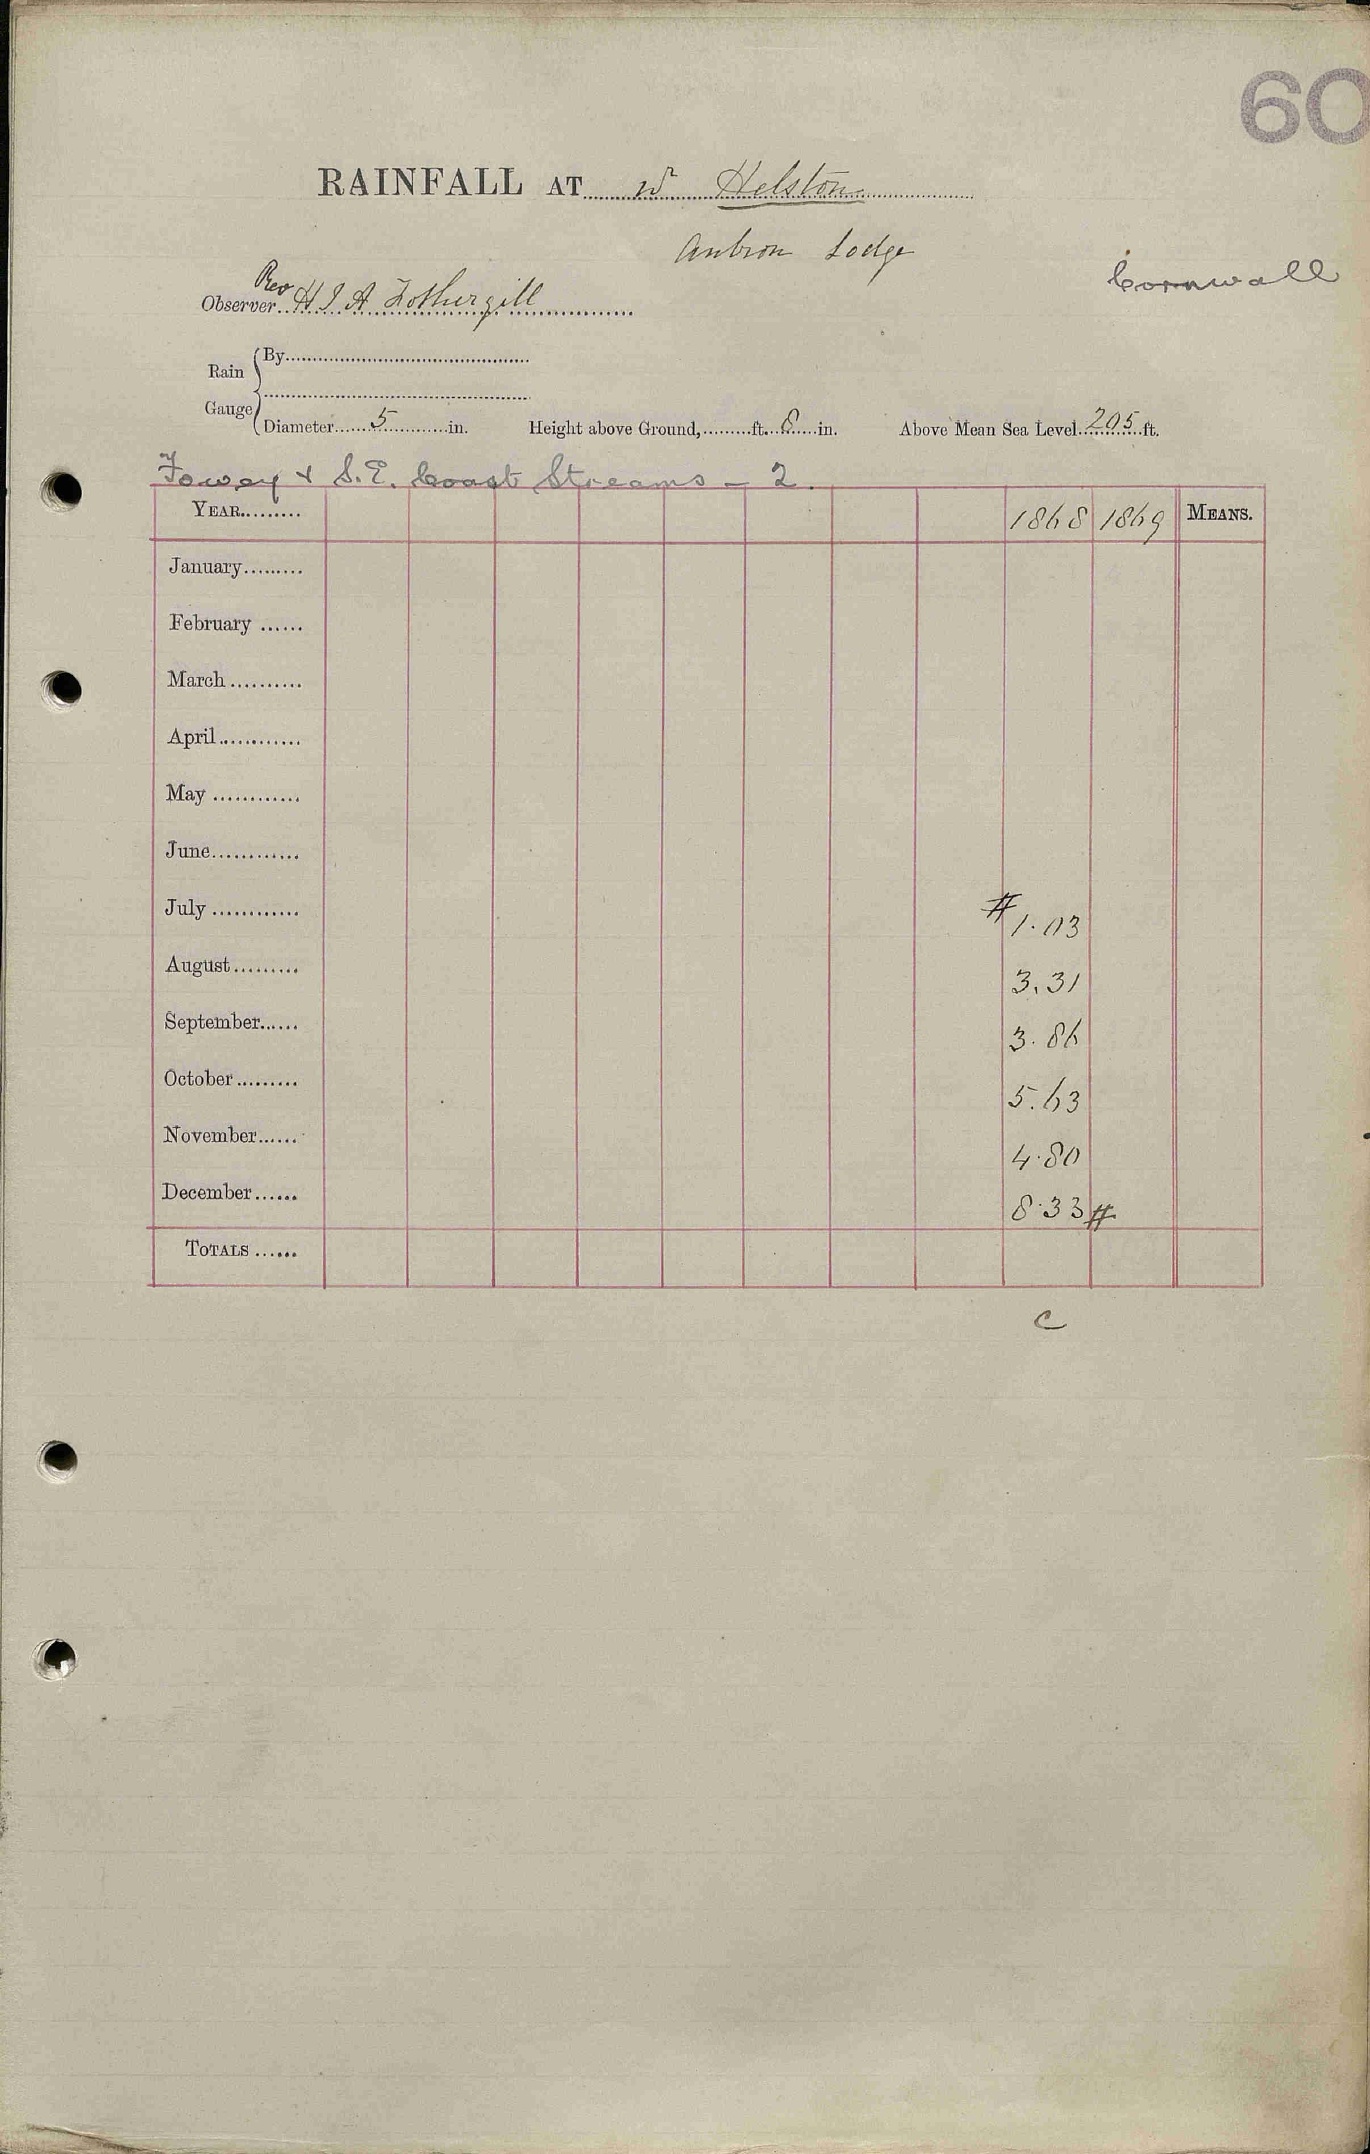 60
RAINFALL AT Helston
Lodge
Cornwall
Rev
Observer H J A Fothergill
Rain Gauge
By
Diameter 5 in. Height above Ground, ft. 8 in. Above Mean Sea Level 205 ft.
Fowey & S.E. Coast Streams - 2.
YEAR 1868 1869 MEANS.
January
February
March
April
May
June
July # 1.03
August 3.31
September 3.86
October 5.63
November 4.80
December 8.33 #
TOTALS
C